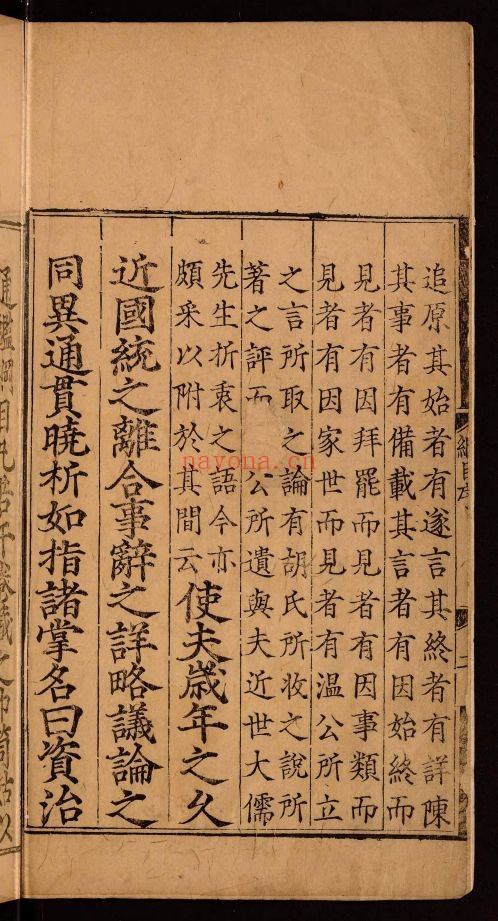 綱目序
二
追原其始者有遂言其終者有詳陳
其事者有備載其言者有因始終而
見者有因拜罷而見者有因事類而
見者有因家世而見者有温公所立
之言所取之論有胡氏所收之說所
著之評而 公所遺與夫近世大儒
先生折衷之語今亦
頗采以附於其間云
使夫歲年之久
近國統之離合事辭之詳略議論之
同異通貫曉析如指諸掌名曰資治
通鑑綱目凡若干卷藏之巾笥姑以
nayona.cn